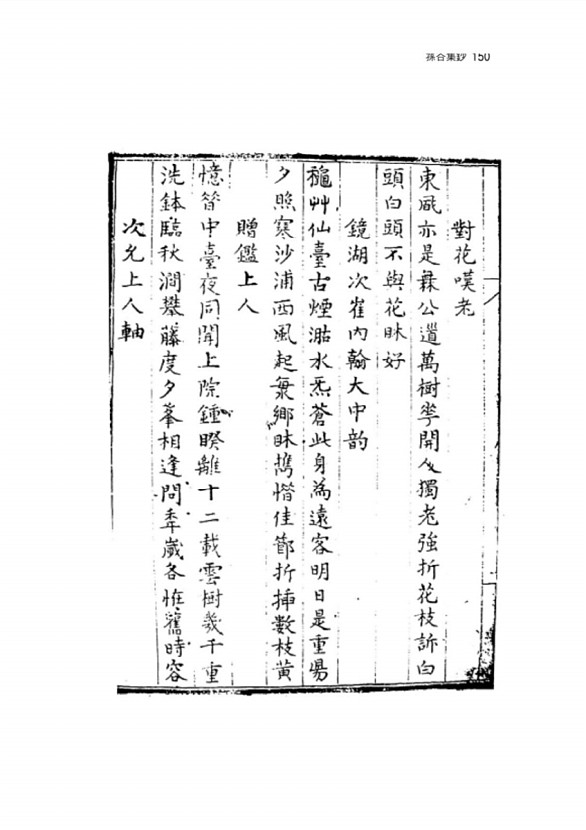 蓀谷集鈔 150
對花嘆老
東風亦是無公道萬樹花開人獨老強折花枝訴白
頭白頭不與花相好
鏡湖次崔內翰大中韵
龝艸仙臺古煙沽水炁蒼此身為遠客明日是重陽
夕照寒沙浦西風起鄉相攜惜佳節折揷數枝黃
贈鑑上人
憶昔中臺夜同聞上院鍾睽離十二載雲樹幾千重
洗鉢臨秋澗攀藤度夕峯相逢問年歲各恠舊時容
次允上人軸